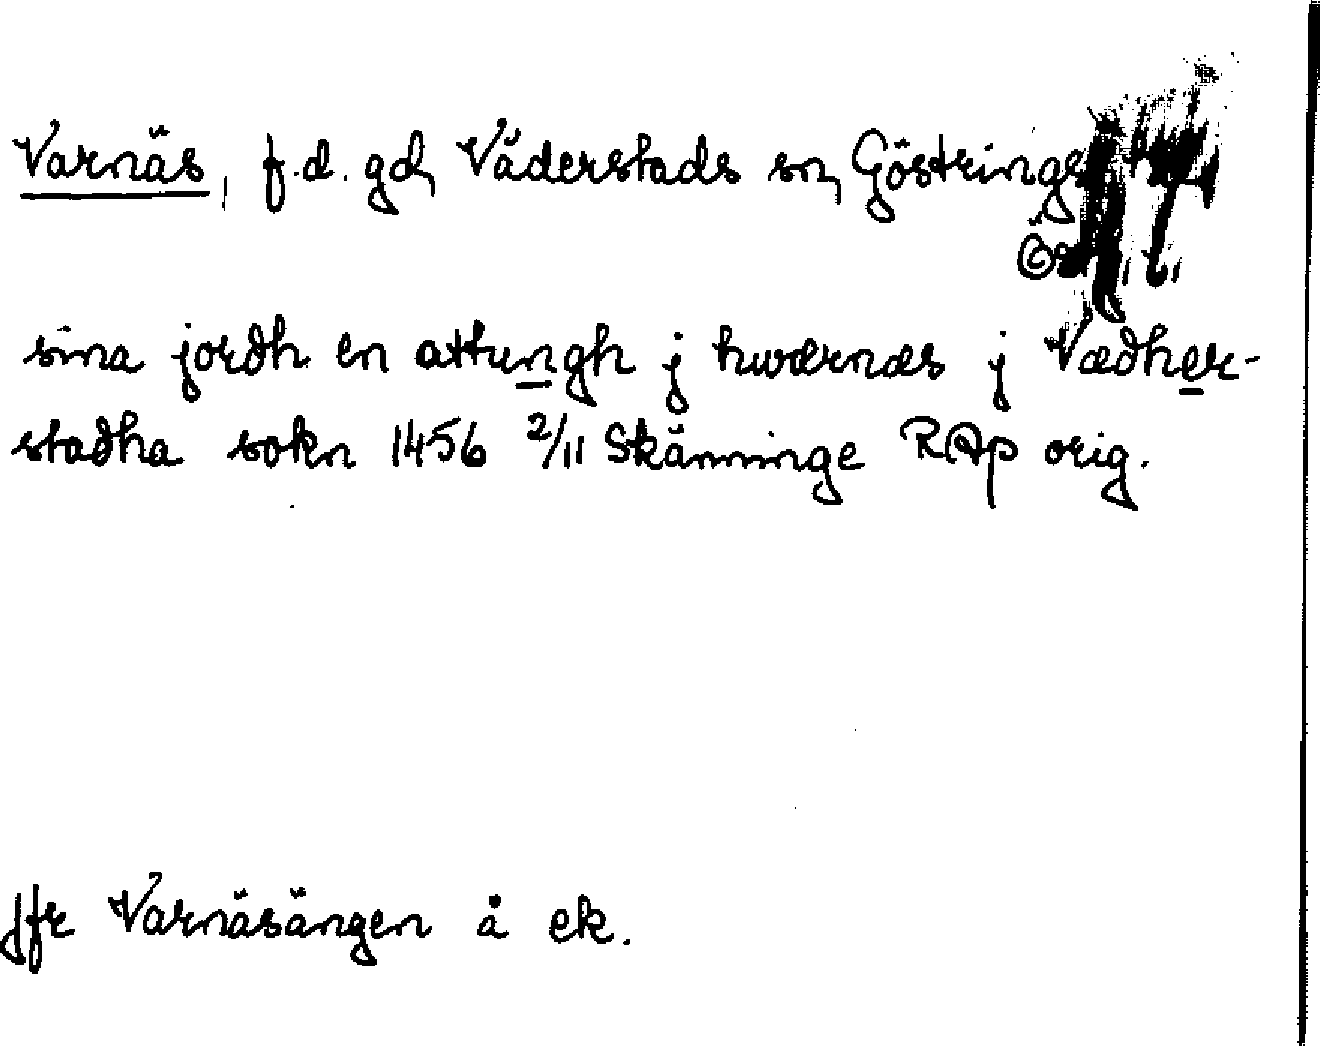 Varnäs, f.d. gd, Väderstads sn, Göstrings
sina jordh en attungh j hwærnæs j Vædher-
stadha sokn 1456 2/11 Skänninge RAp orig.
Jfr Varnäsängen å ek.